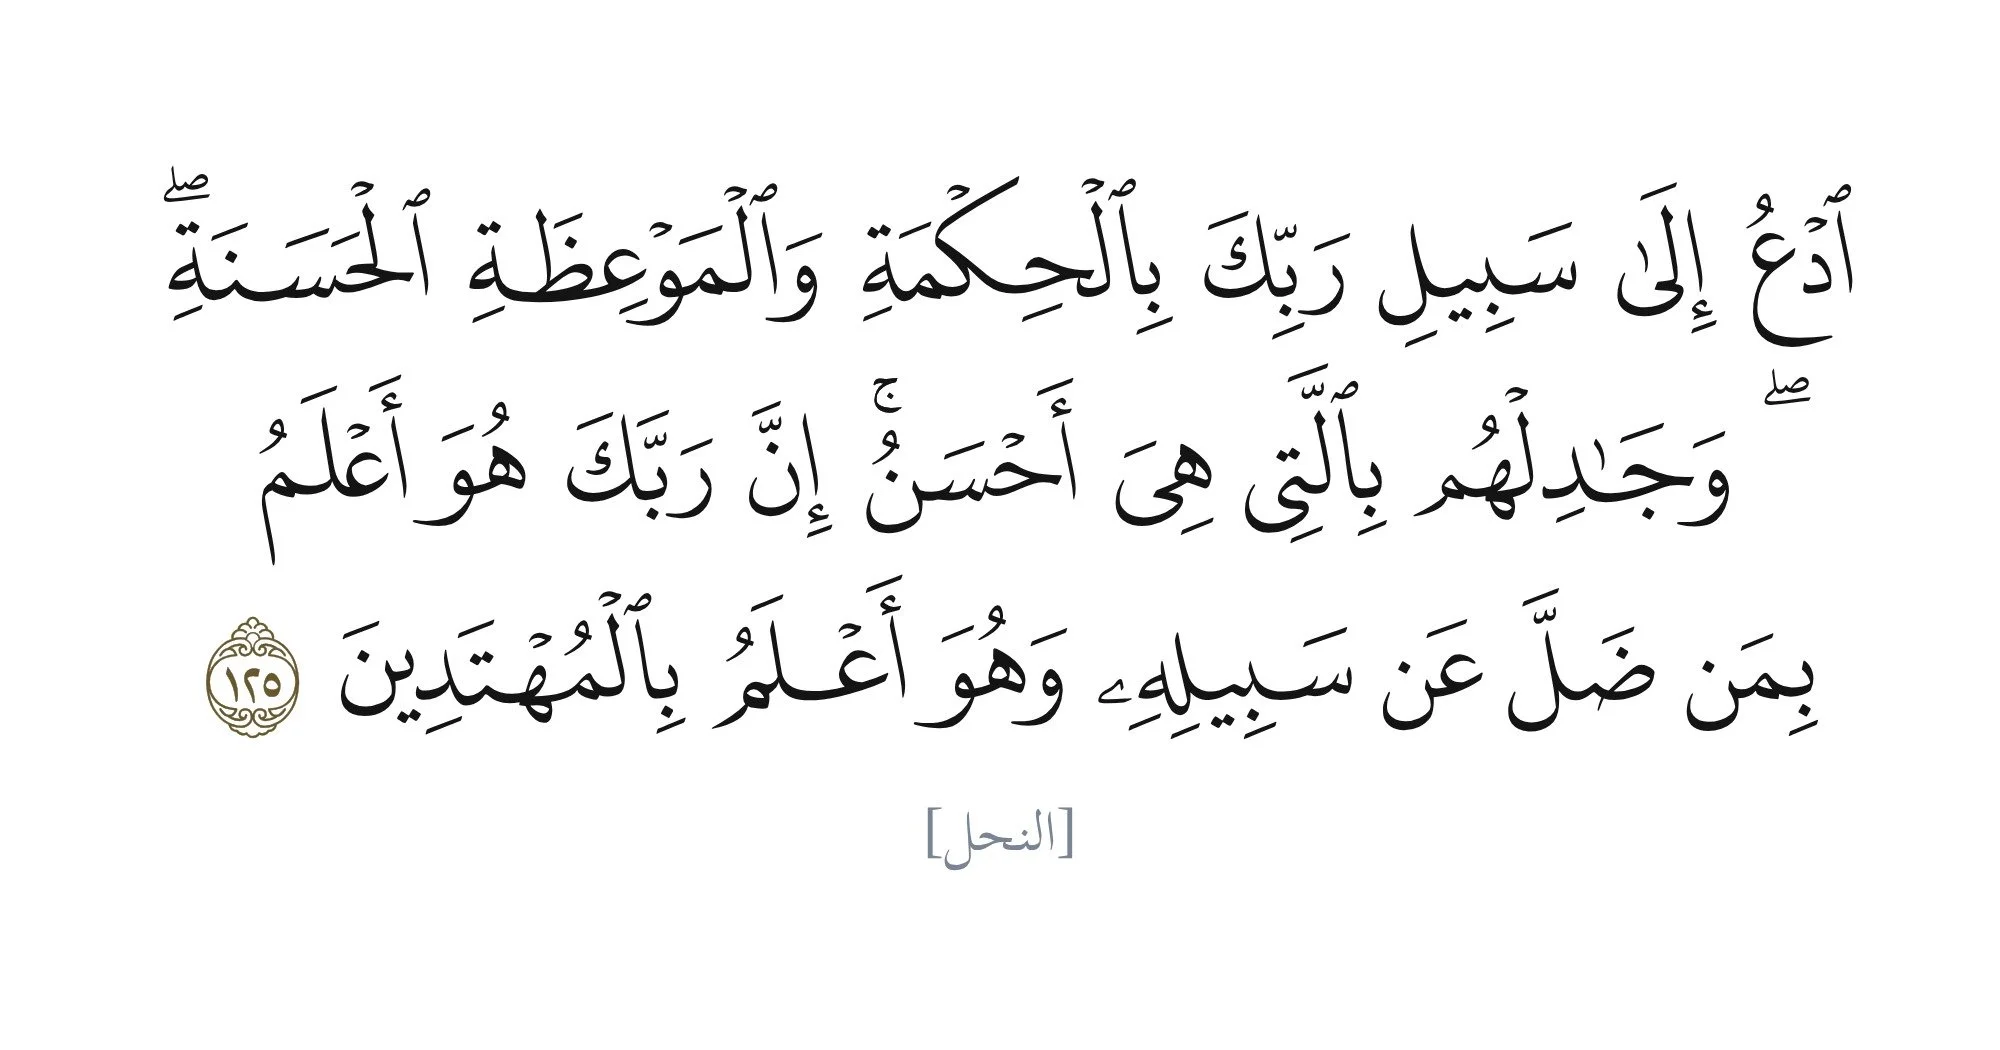 ٱدْعُ إِلَىٰ سَبِيلِ رَبِّكَ بِٱلْحِكْمَةِ وَٱلْمَوْعِظَةِ ٱلْحَسَنَةِ ۖ
ۖ وَجَـٰدِلْهُم بِٱلَّتِى هِىَ أَحْسَنُ ۚ إِنَّ رَبَّكَ هُوَ أَعْلَمُ
بِمَن ضَلَّ عَن سَبِيلِهِۦ وَهُوَ أَعْلَمُ بِٱلْمُهْتَدِينَ ١٢٥
[النحل]